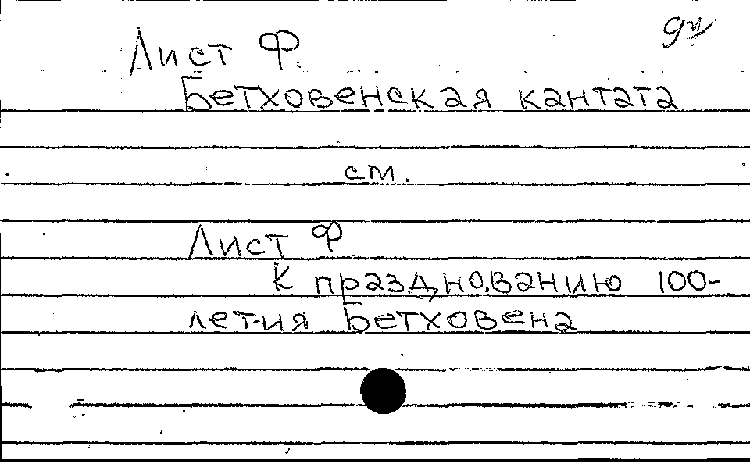 Лист Ф.
Бетховенская кантата
см.
Лист Ф
К празднованию 100-
летия Бетховена